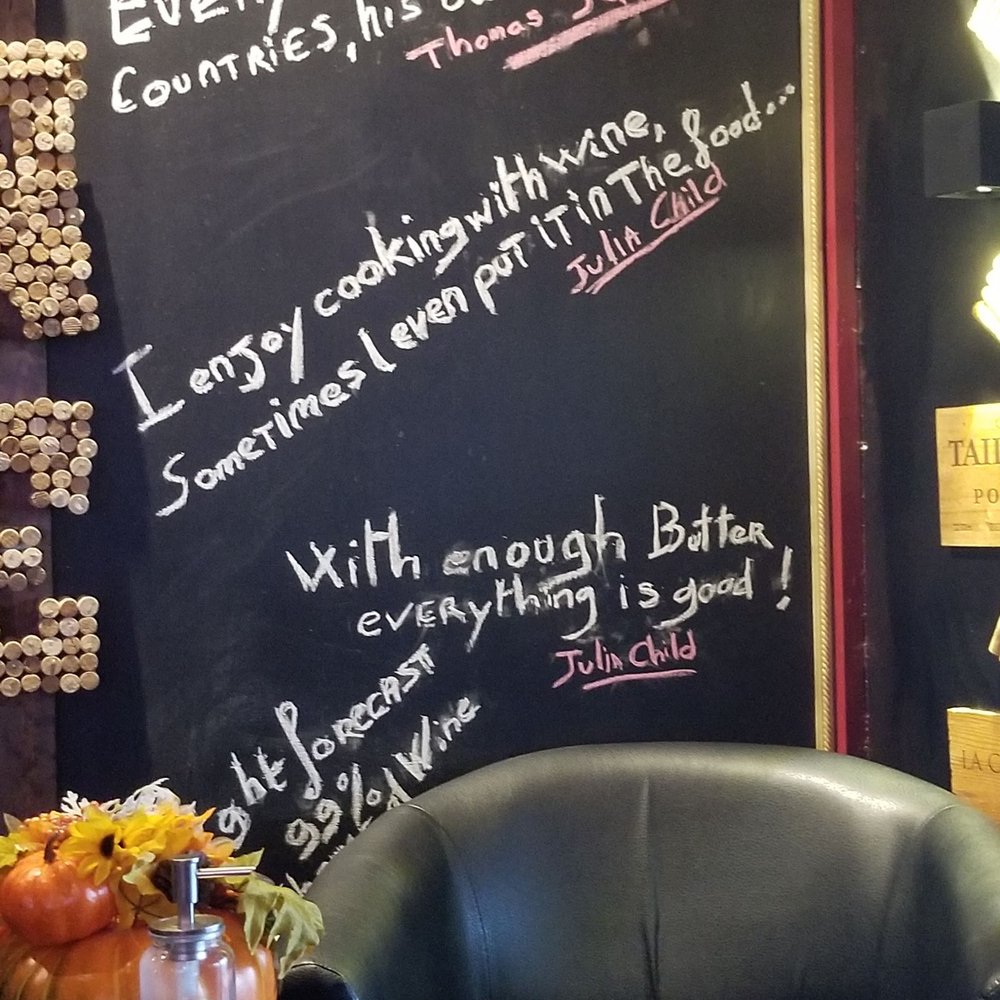 Every
Countries, his
Thomas
I enjoy cooking with wine,
Sometimes I even put it in The food...
Julia Child
With enough Butter
everything is good!
Julia Child
ght forecast
99% of Wine
TAIL
PO
LA C